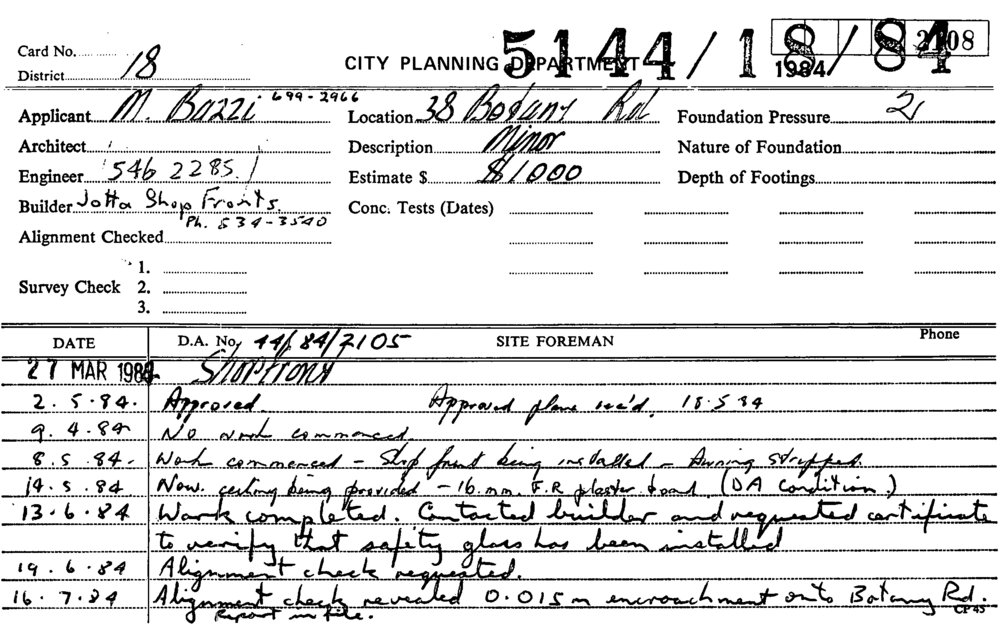 Card No.
District 18
CITY PLANNING DEPARTMENT
5144/18/84
1984
2108
Applicant M. Bazzi 699-2966
Location 38 Botany Rd
Foundation Pressure 2
Architect
Description Minor
Nature of Foundation
Engineer 546 2285
Estimate $ $1000
Depth of Footings
Builder Jotta Shop Fronts.
Ph. 534-3540
Conc. Tests (Dates)
Alignment Checked
Survey Check
1.
2.
3.
DATE D.A. No. 44/84/2105 SITE FOREMAN Phone
27 MAR 1984 Shopfront
2.5.84. Approved. Approved plans rec'd. 18.5.84
9.4.84 No work commenced.
8.5.84. Work commenced - Shop front being installed - Awning stripped.
14.5.84 New ceiling being provided - 16 mm. F.R plaster board (DA Condition.)
13.6.84 Work completed. Contacted builder and requested certificate
to verify that safety glass has been installed
19.6.84 Alignment check requested.
16.7.84 Alignment check revealed 0.015m encroachment onto Botany Rd.
Report in file.
CP45